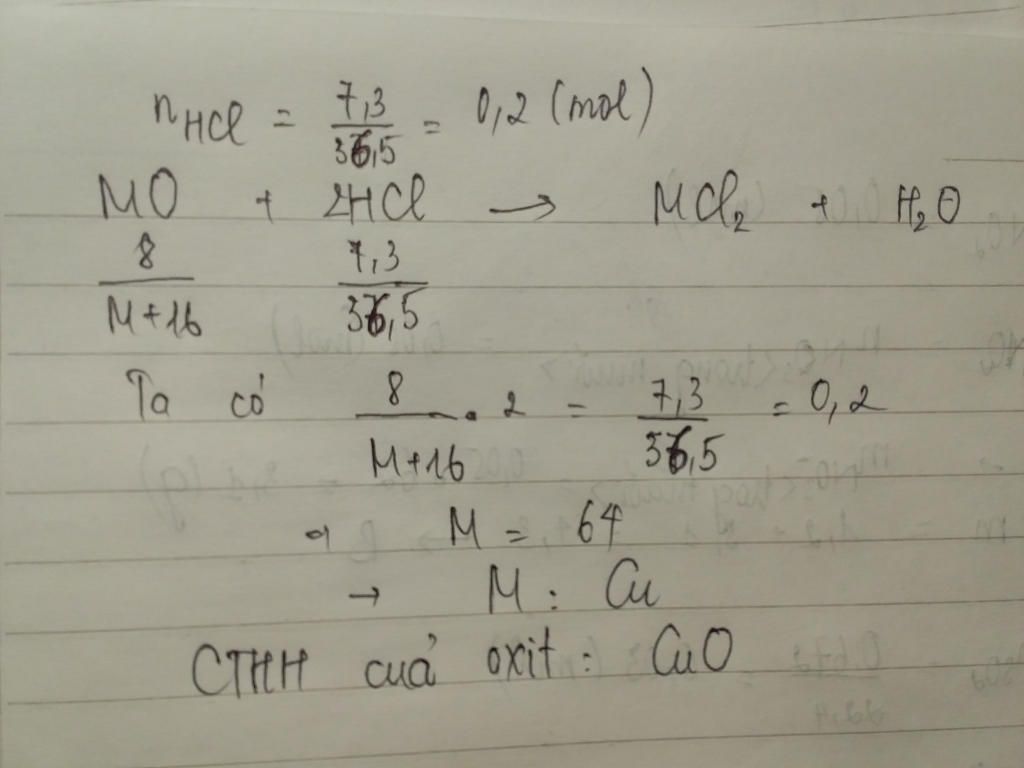 nHCl = 7,3/36,5 = 0,2 (mol)
MO + 2HCl → MCl₂ + H₂O
8/M+16 7,3/36,5
Ta có 8/M+16 . 2 = 7,3/36,5 = 0,2
→ M = 64
→ M : Cu
CTHH cuả oxit : CuO